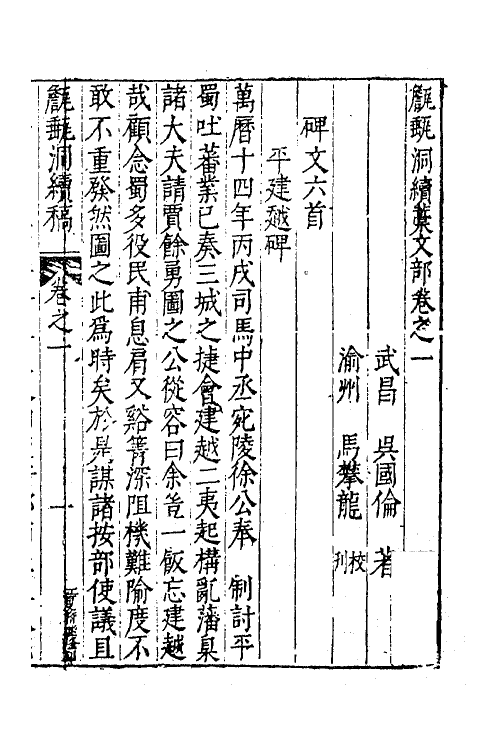 甔甀洞續藁文部卷之一
武昌 吳國倫 著
渝州 馬攀龍 校刊
碑文六首
平建越碑
萬曆十四年丙戌司馬中丞宛陵徐公奉 制討平
蜀吐蕃業已奏三城之捷會建越二夷起構亂藩臬
諸大夫請賈餘勇圖之公從容曰余豈一飯忘建越
哉顧念蜀多役民甫息肩又谿箐深阻機難隃度不
敢不重發然圖之此為時矣於是謀諸按部使議且
甔甀洞續稿 卷之一 一